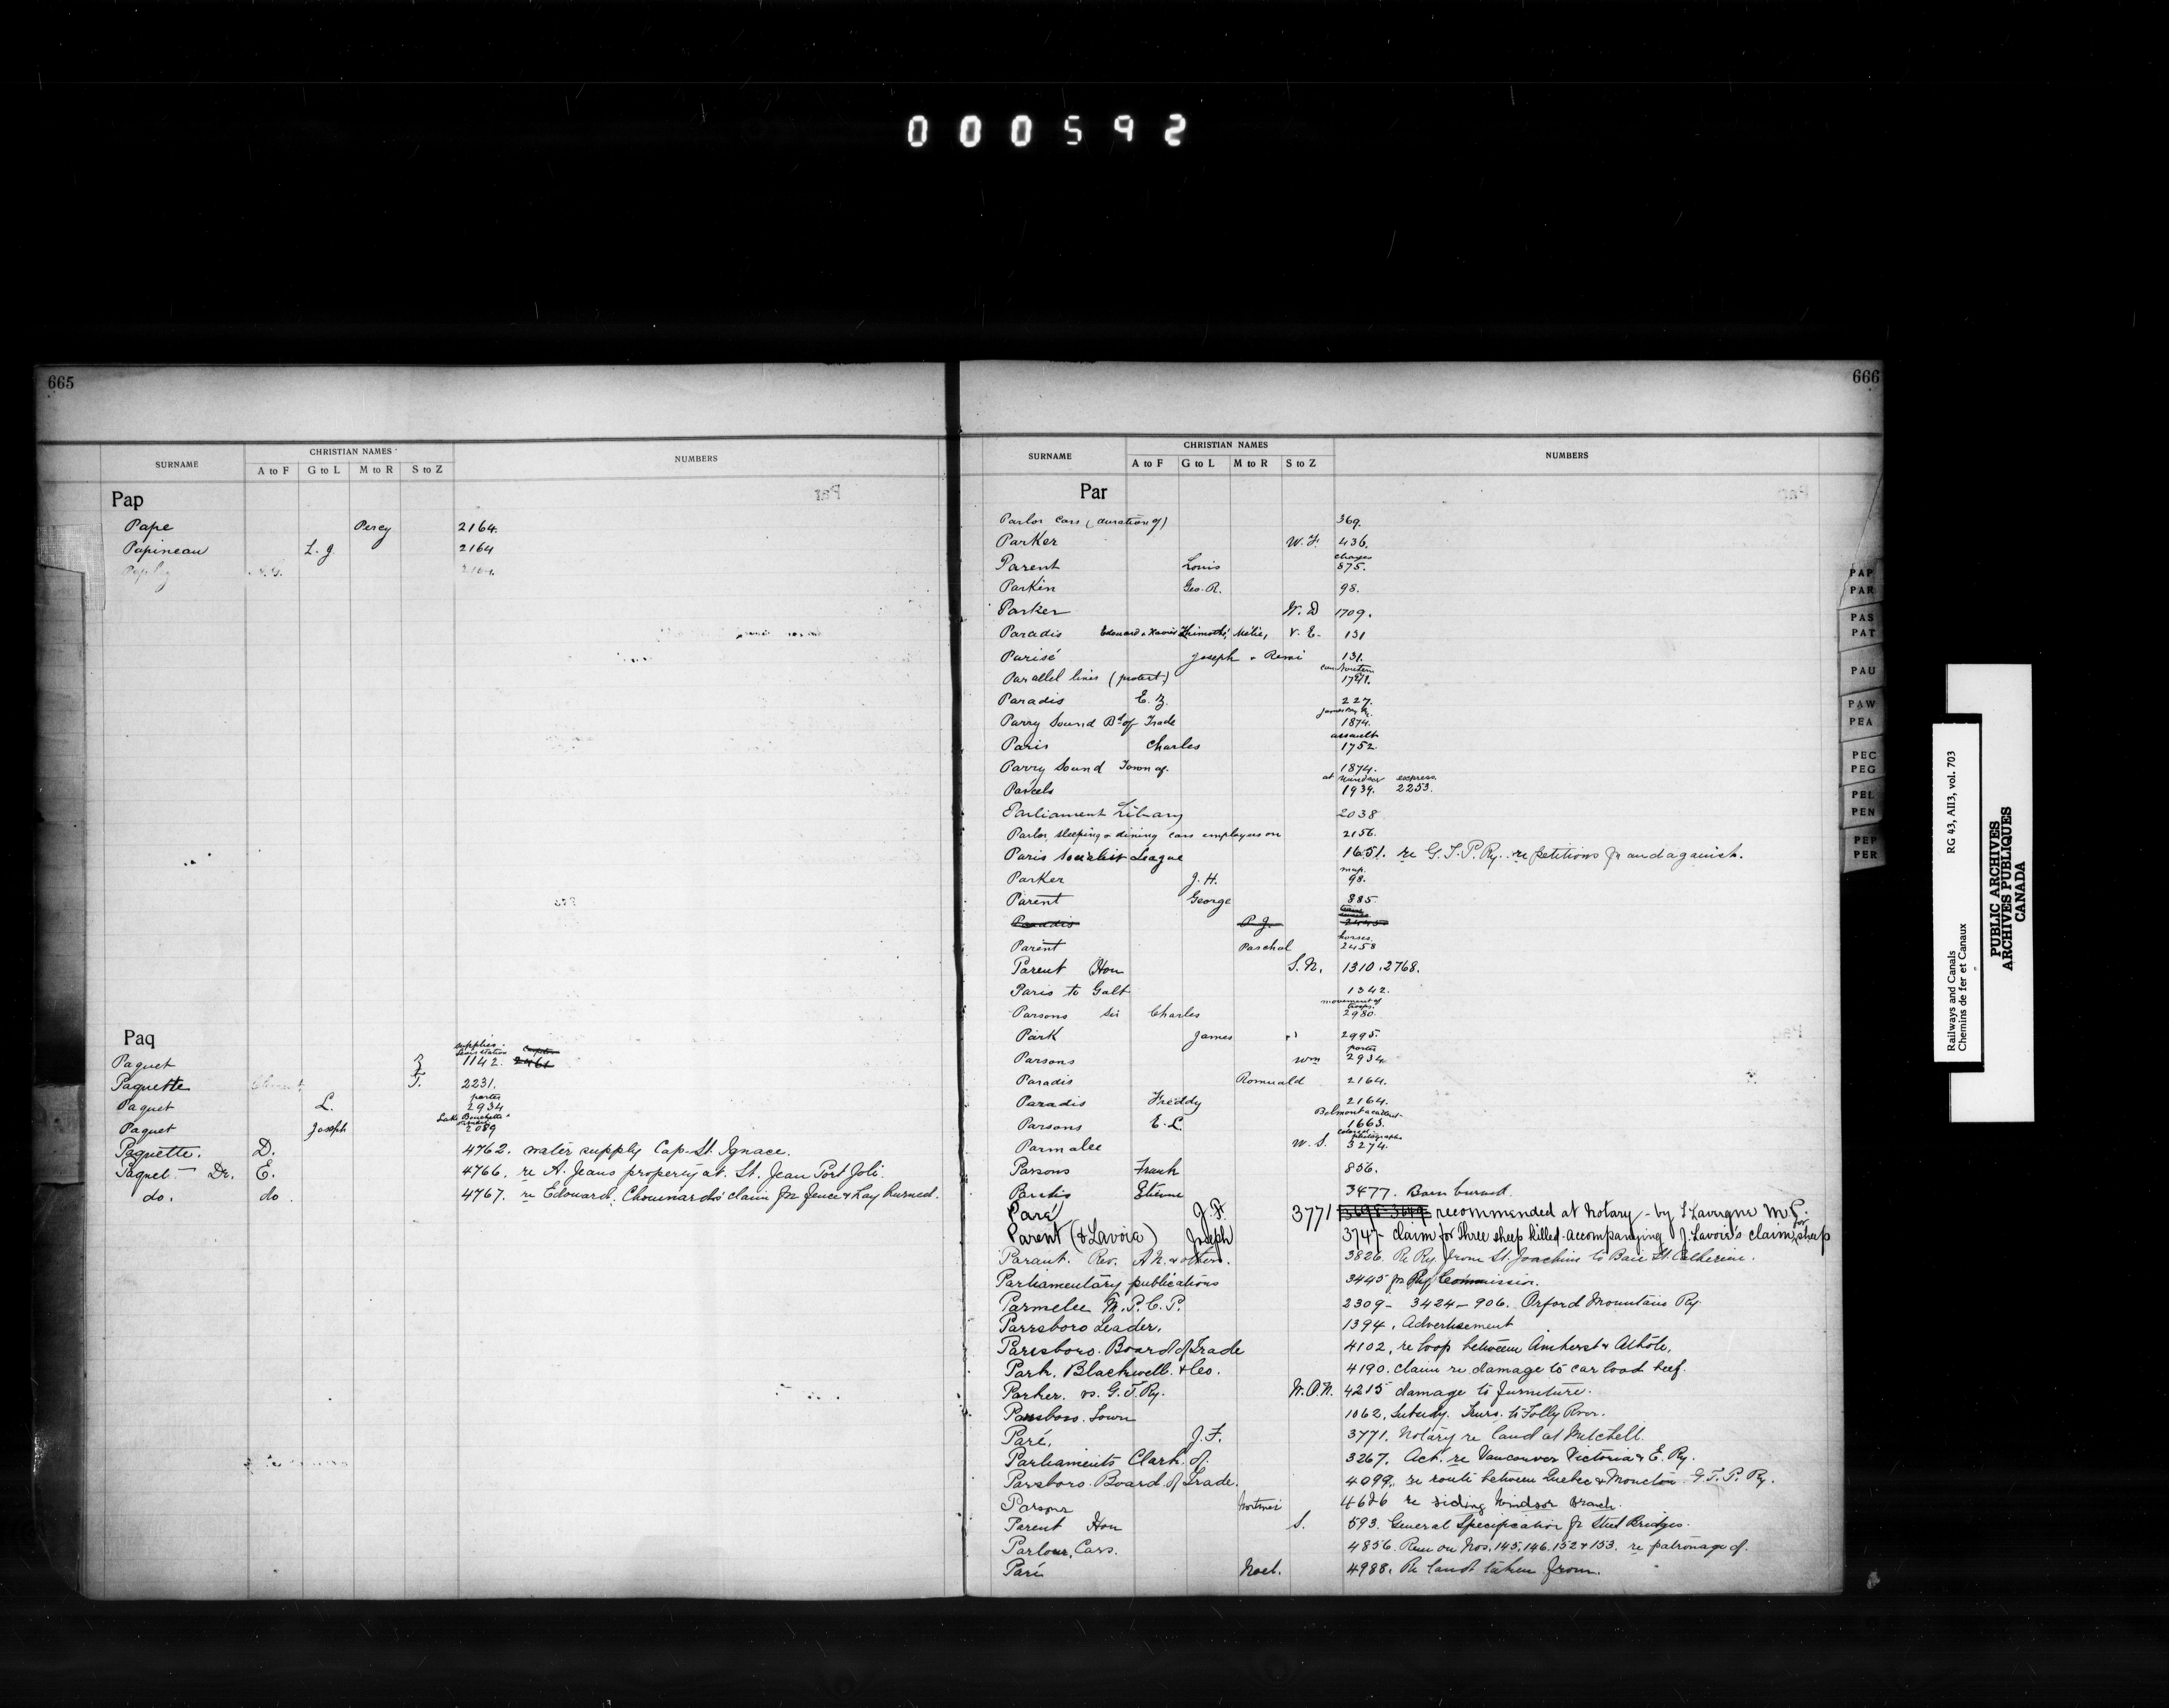 000592
665
SURNAME CHRISTIAN NAMES NUMBERS
A to F G to L M to R S to Z
Pap
Pape Percy 2164.
Papineau L. J. 2164
2164.
Paq
Paquet Z supplies 1142. 2461
Paquette T. 2231.
Paquet L. porter 2934
Paquet Joseph Lake Bouchette 2089
Paquette. D. 4762. water supply Cap-St. Ignace.
Paquet Dr. E. 4766. re A. Jeans property at St. Jean Port Joli
do. do 4767. re Edouard Chouinards' claim for fence & hay burned.
666
SURNAME CHRISTIAN NAMES NUMBERS
A to F G to L M to R S to Z
Par
Parlor cars (duration of) 369.
Parker W. F. 436.
Parent Louis charges 875.
Parkin Geo. R. 98.
Parker W. D 1709.
Paradis Edouard & Xavier Thimothé, Mélie, V. E. 131
Parisé Joseph & Remi 131.
Parallel lines (protest) construction 1781.
Paradis E. Z. 227.
Parry Sound Bd of Trade James Bay Ry. 1874.
Paris Charles assault 1752
Parry Sound Town of. 1874.
Parcels at Windsor 1939. express 2253.
Parliament Library 2038
Parlor, sleeping & dining cars employees on 2156.
Paris Socialist League 1651. re G. T. P. Ry. re petitions for and against.
Parker J. H. map. 98.
Parent George 885.
Paradis P. J.
Parent Paschal horses 2458
Parent Hon S. N. 1310. 2768.
Paris to Galt 1342.
Parsons Sir Charles movement of troops. 2980.
Park James 2995.
Parsons Wm porter 2934
Paradis Romuald 2164.
Paradis Freddy 2164.
Parsons E. L. Belmont accident 1663.
Parmalee W. S. colored photographs 3274.
Parsons Frank 856.
Paradis Etienne 3477. Barn burned.
Paré J. F. 3771 3698 3649 recommended at Notary - by L Lavergne M P.
Parent (& Lavoie) Joseph 3747 - claim for Three sheep killed - accompanying J. Lavoie's claim for sheep
Parant. Rev. A N. & others. 3826. Re Ry. from St. Joachim to Baie St. Catherine.
Parliamentary publications 3445 for Ry Commission.
Parmelee M. P. C. P. 2309 - 3424 - 906. Orford Mountain Ry.
Parrsboro Leader. 1394. Advertisement
Parrsboro. Board of Trade 4102, re loop between Amherst & Athole.
Park. Blackwell & Co. 4190. claim re damage to car load beef.
Parker. vs. G. T. Ry. W. O. N. 4215 damage to furniture.
Parrsboro. Town 1062, Subsidy. Truro. to Folly River.
Paré. J. F. 3771. Notary re land at Mitchell.
Parliaments Clark of. 3267. Act. re Vancouver Victoria & E. Ry.
Parsboro. Board of Trade. 4099. re route between Quebec & Moncton G. T. P. Ry.
Parsons 4626 re siding Windsor Branch.
Parent Hon S. 593. General Specification for Steel Bridges.
Parlour, Cars. 4856. Run on Nos. 145, 146. 152 & 153. re patronage of.
Paré Noel. 4988. Re land taken from.
PAP
PAR
PAS
PAT
PAU
PAW
PEA
PEC
PEG
PEL
PEN
PEP
PER
Railways and Canals RG 43, AII3, vol. 703
Chemins de fer et Canaux
PUBLIC ARCHIVES
ARCHIVES PUBLIQUES
CANADA